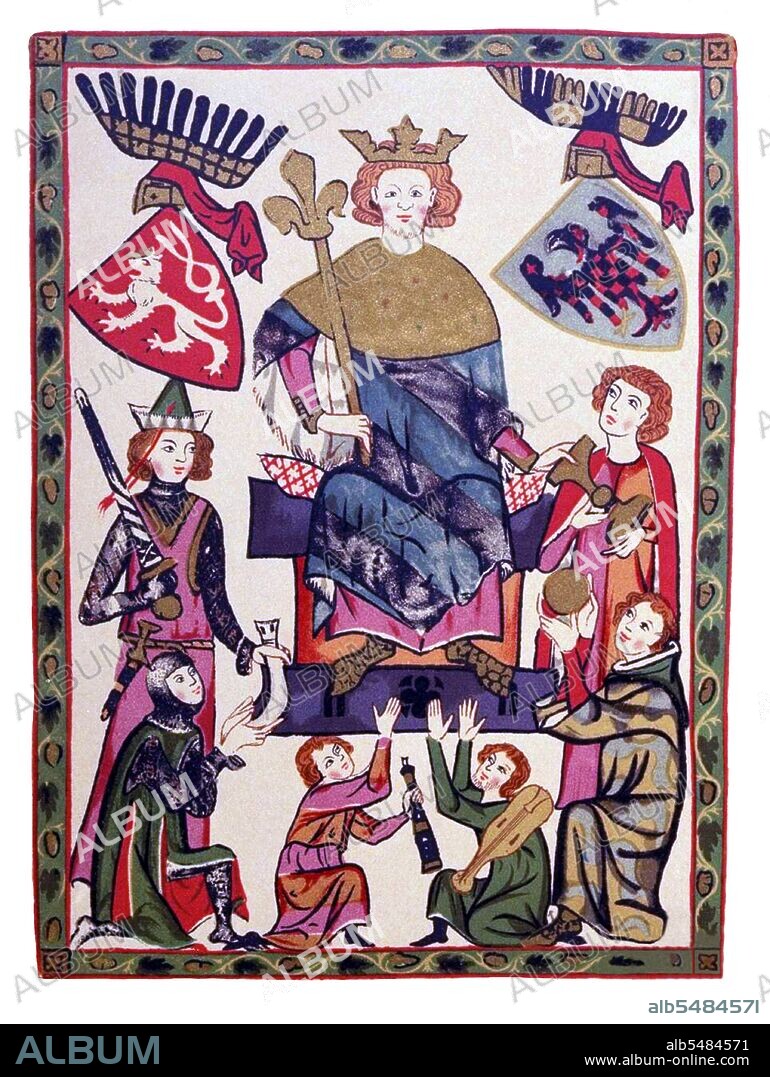 alb5484571
ALBUM
alb5484571
www.album-online.com